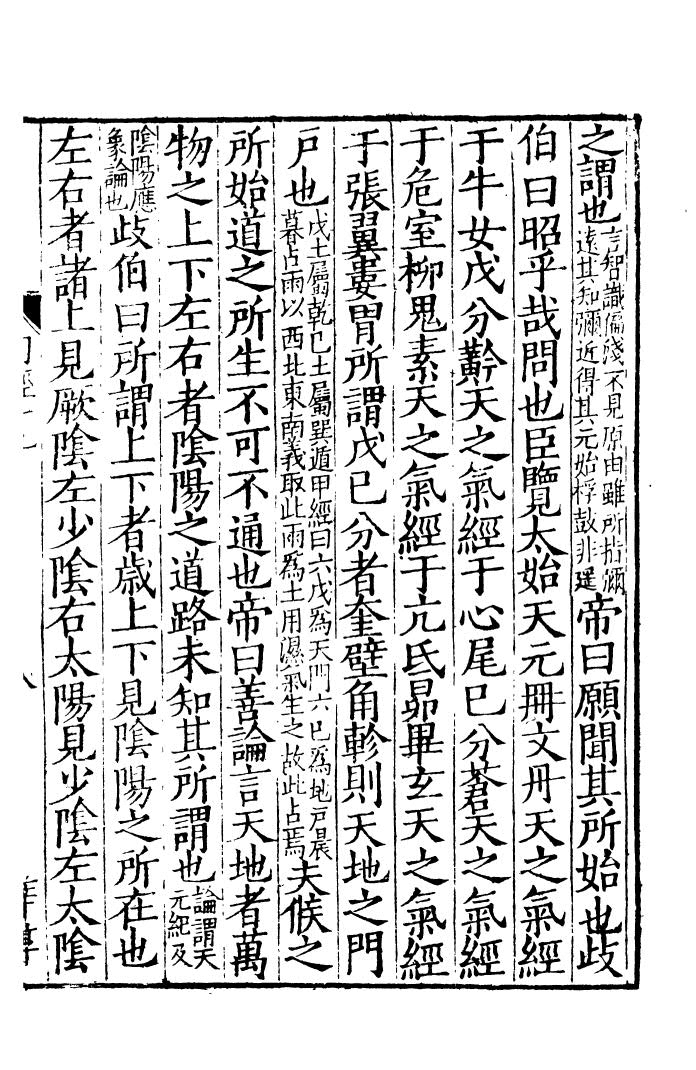 之謂也言智識偏淺不見原由雖所指彌遠其知彌近得其元始桴鼓非遥帝曰願聞其所始也歧
伯曰昭乎哉問也臣覽太始天元冊文丹天之氣經
于牛女戊分黅天之氣經于心尾巳分蒼天之氣經
于危室柳鬼素天之氣經于亢氐昴畢玄天之氣經
于張翼婁胃所謂戊巳分者奎壁角軫則天地之門
戶也戊土屬乾巳土屬巽遁甲經曰六戊為天門六巳為地戶晨暮占雨以西北東南義取此雨為土用濕氣生之故此占焉夫候之
所始道之所生不可不通也帝曰善論言天地者萬
物之上下左右者陰陽之道路未知其所謂也論謂天元紀及
陰陽應象論也歧伯曰所謂上下者歲上下見陰陽之所在也
左右者諸上見厥陰左少陰右太陽見少陰左太陰